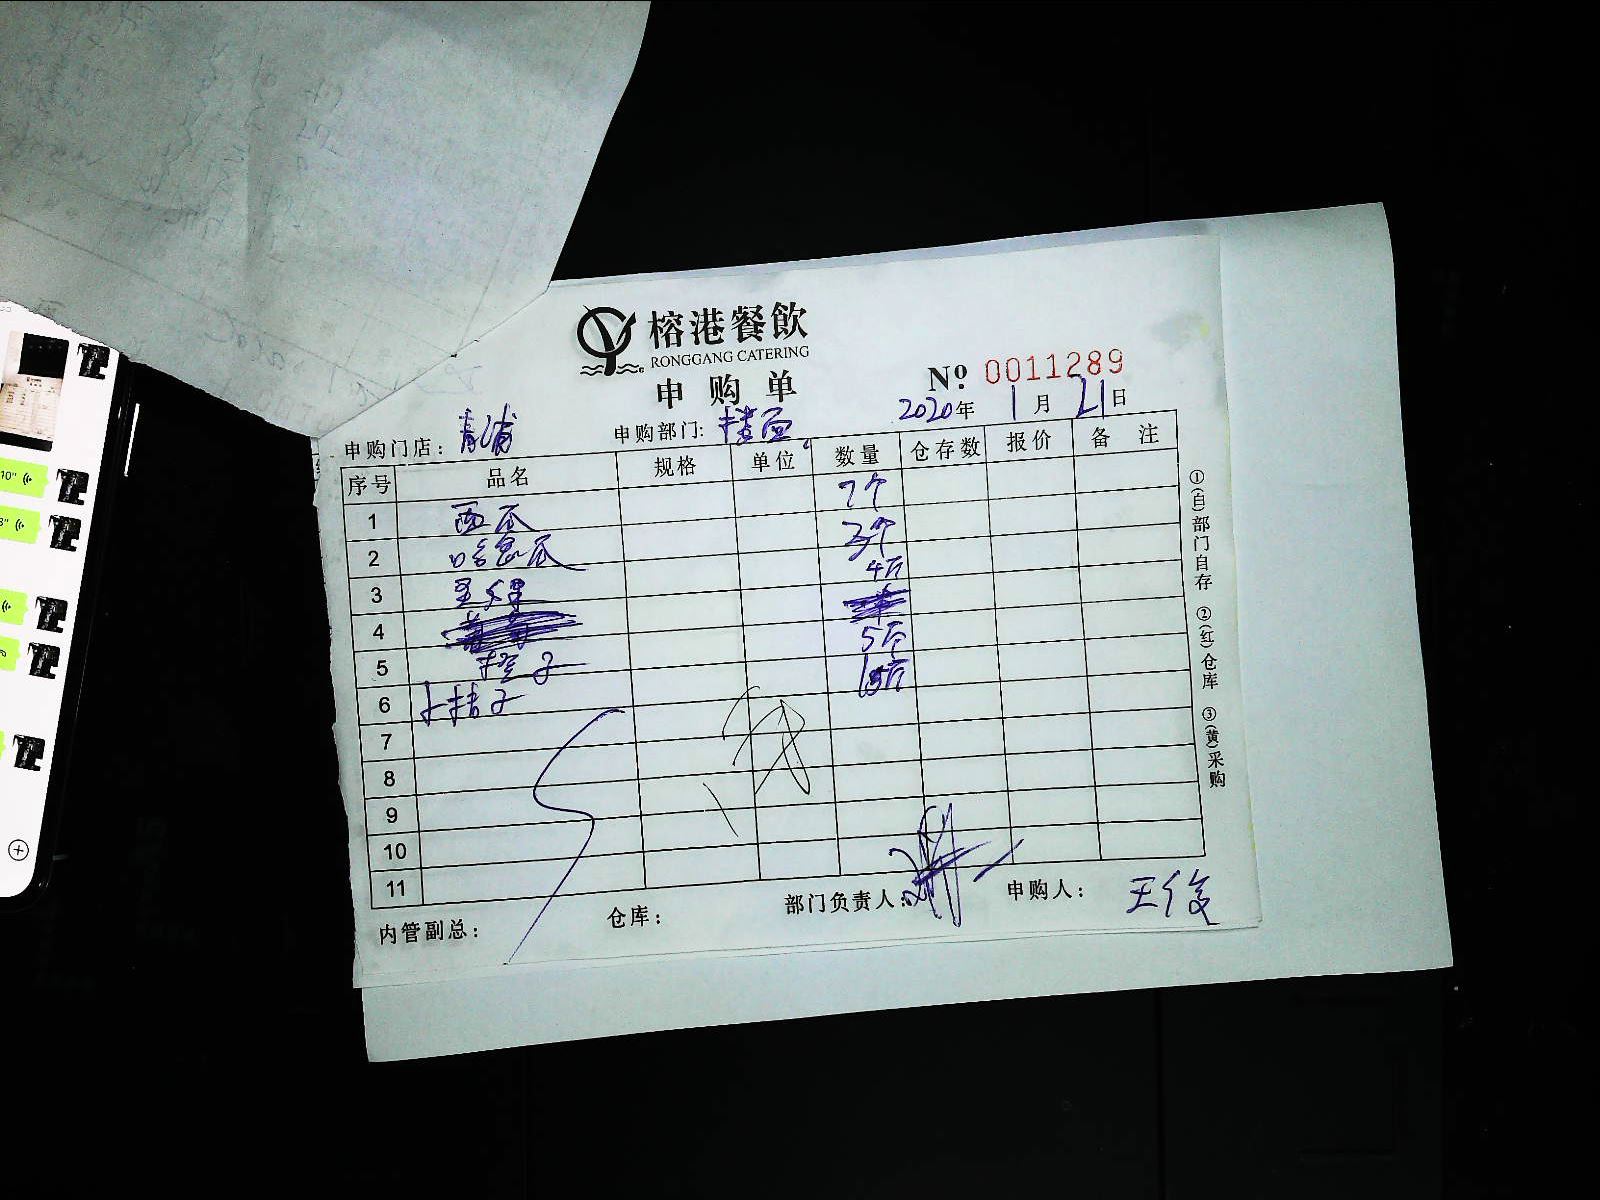 榕港餐飲
RONGGANG CATERING
申购单
№ 0011289
2020年 1月 21日
申购门店: 青浦 申购部门: 楼面
序号 品名 规格 单位 数量 仓存数 报价 备注
1 西瓜 7个
2 哈密瓜 3个
3 圣女果 4斤
4
5 橙子 5斤
6 小桔子 15斤
7
8
9
10
11
内管副总: 仓库: 部门负责人: 申购人: 王俊
①(白)部门自存 ②(红)仓库 ③(黄)采购
10"
3"